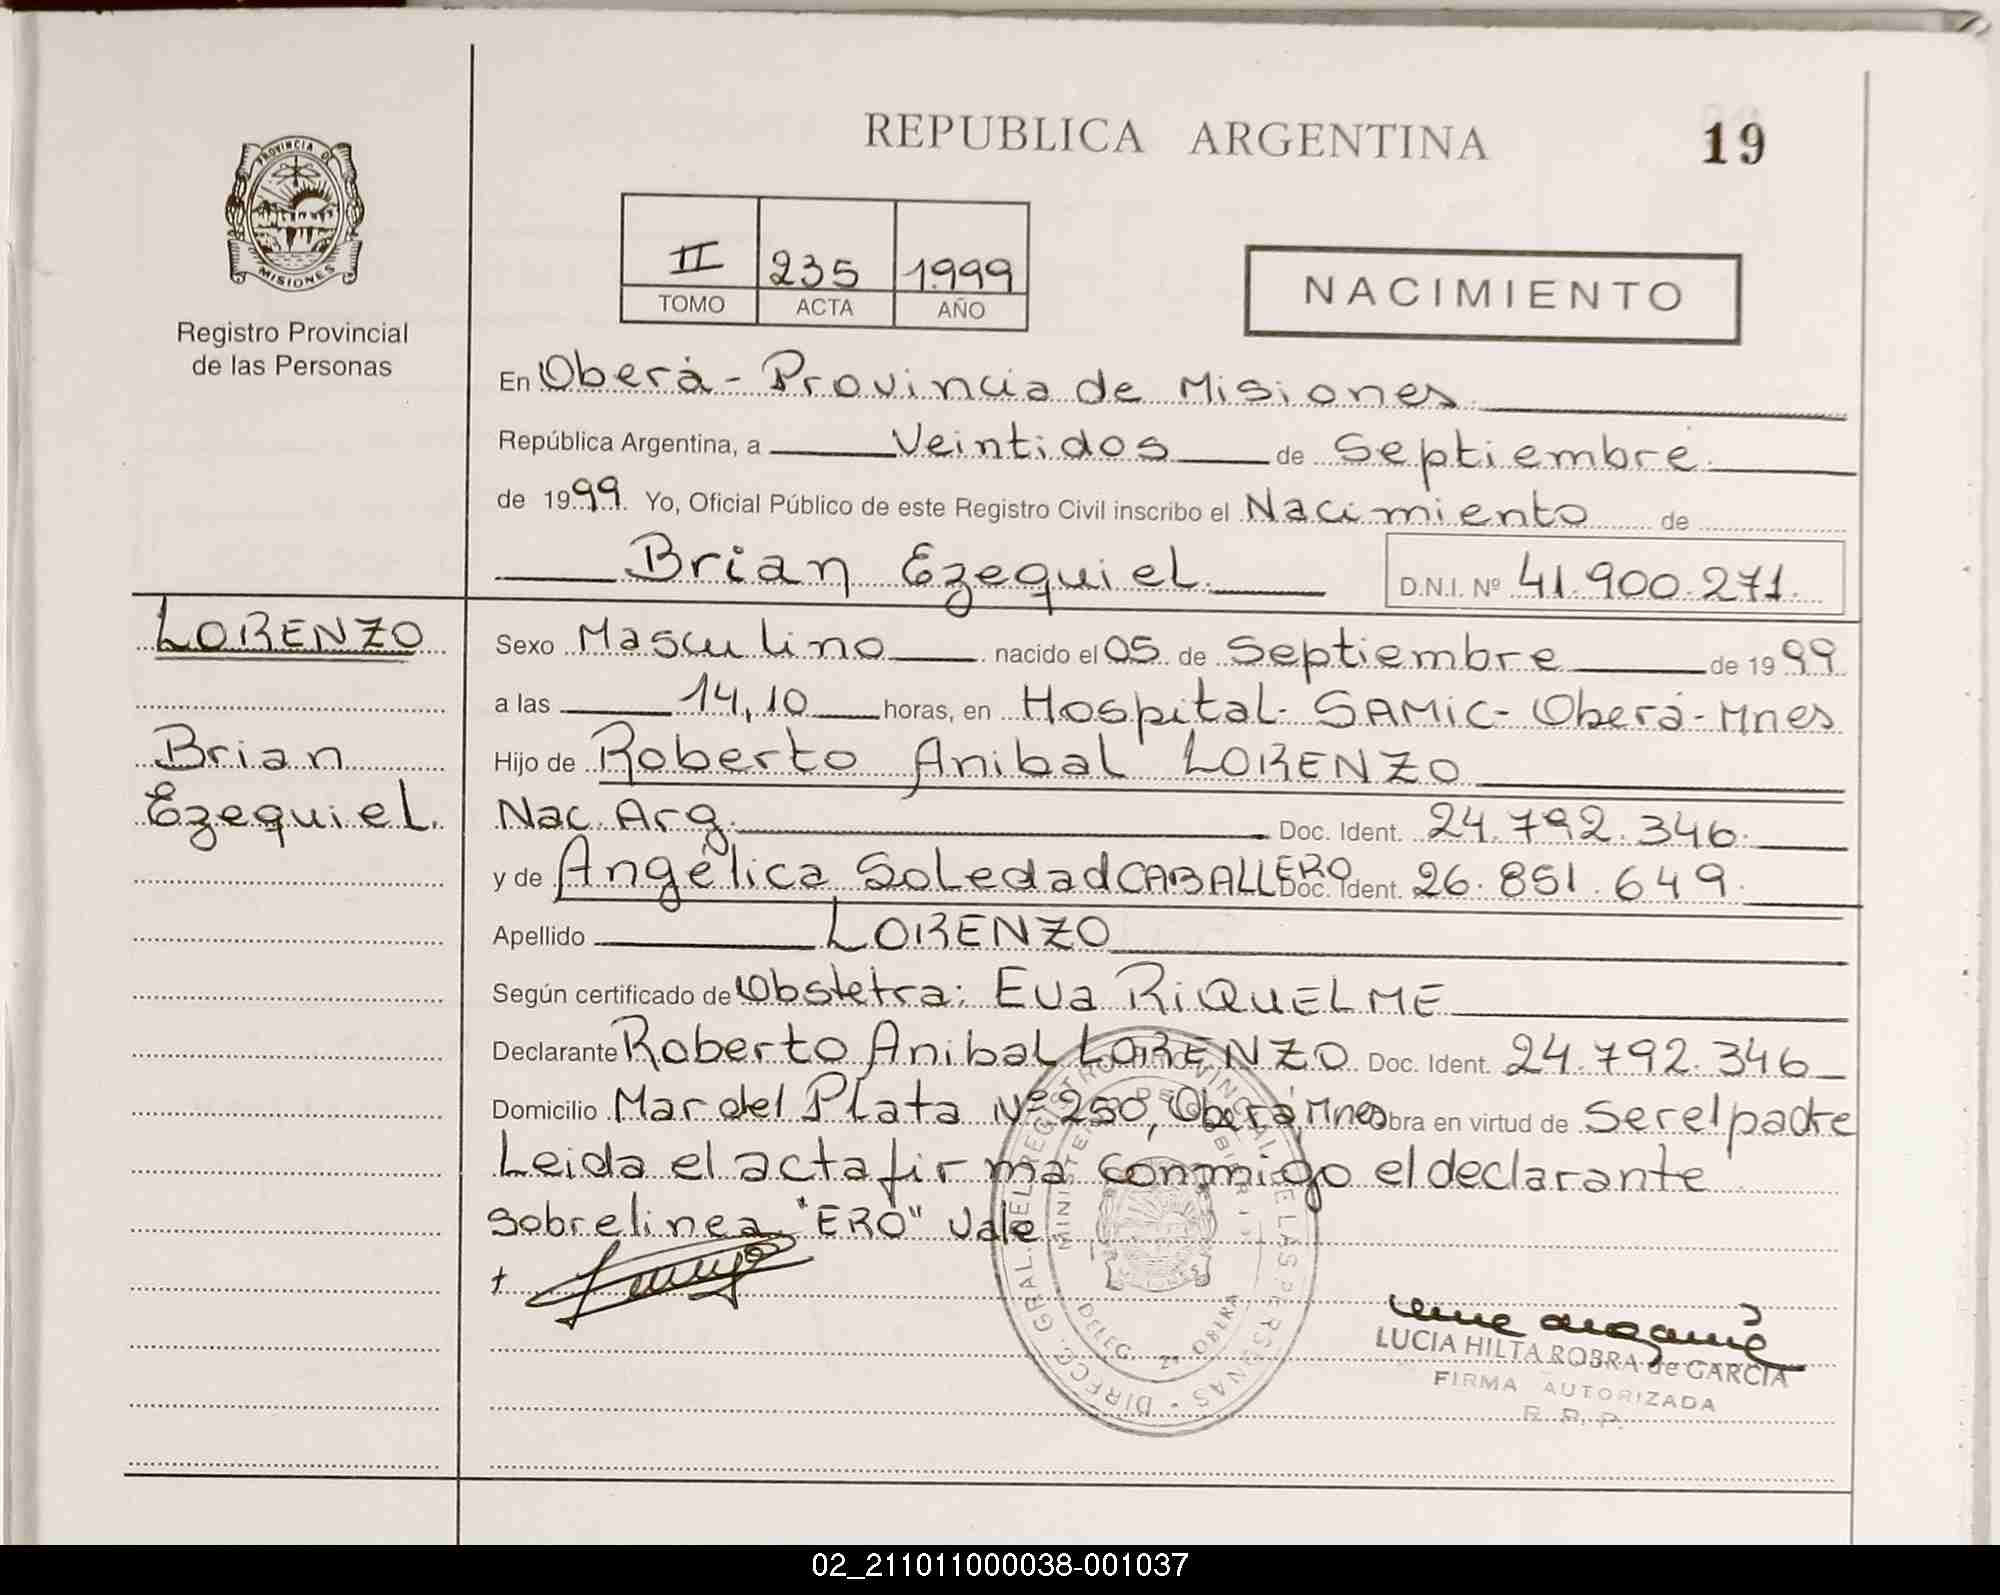 REPUBLICA ARGENTINA
19
PROVINCIA DE
MISIONES
Registro Provincial
de las Personas
II 235 1999
TOMO ACTA AÑO
NACIMIENTO
En Oberá - Provincia de Misiones
República Argentina, a Veintidos de Septiembre
de 1999 Yo, Oficial Público de este Registro Civil inscribo el Nacimiento de
Brian Ezequiel D.N.I. Nº 41.900.271.
LORENZO
Brian
Ezequiel.
Sexo Masculino nacido el 05 de Septiembre de 1999
a las 14,10 horas, en Hospital - SAMIC - Oberá - Mnes
Hijo de Roberto Anibal LORENZO
Nac. Arg. Doc. Ident. 24.792.346.
y de Angélica Soledad CABALLERO Doc. Ident. 26.851.649.
Apellido LORENZO
Según certificado de Obstetra: Eva RIQUELME
Declarante Roberto Anibal LORENZO Doc. Ident. 24.792.346
Domicilio Mar del Plata Nº 250, Oberá Mnes Obra en virtud de Ser el padre
Leida el acta firma conmigo el declarante
Sobrelinea "ERO" Vale
DIRECC. GRAL. DEL REGISTRO PROVINCIAL DE LAS PERSONAS
DELEG. 2ª OBERA
LUCIA HILTA ROBRA de GARCIA
FIRMA AUTORIZADA
R. P. P.
02_211011000038-001037